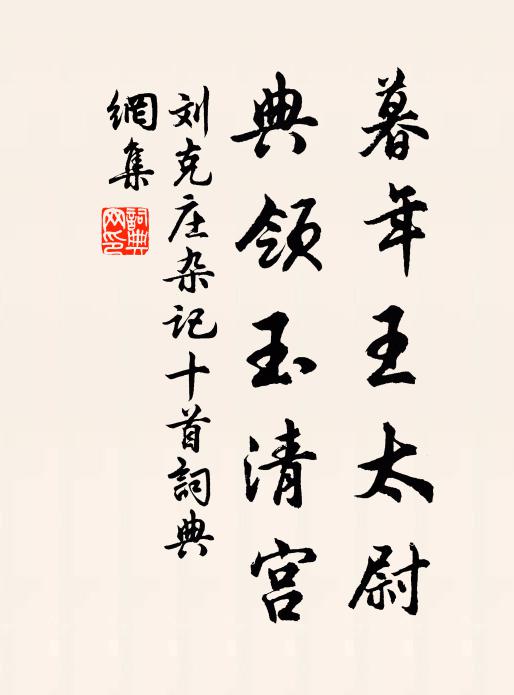 暮年王太尉
典领玉清宫
刘克庄杂记十首詞典
網集
詞典
网印